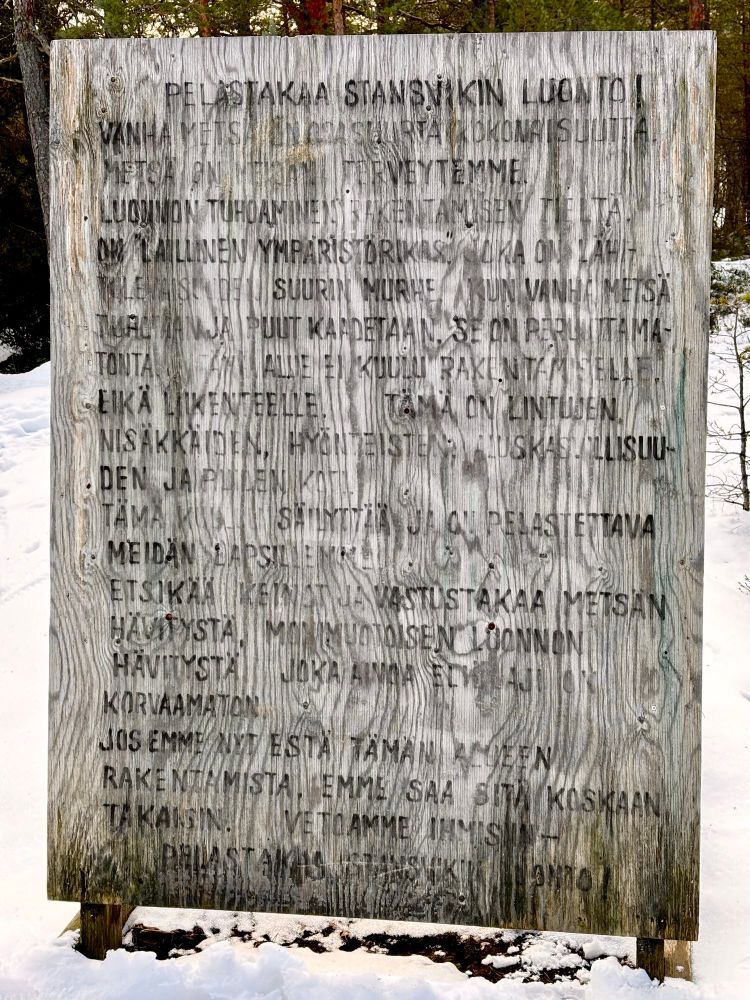 PELASTAKAA STANSVIKIN LUONTO!
VANHA METSÄ ON OSA SUURTA KOKONAISUUTTA.
METSÄ ON MEIDÄN TERVEYTEMME.
LUONNON TUHOAMINEN RAKENTAMISEN TIELTÄ
ON "LAILLINEN YMPÄRISTÖRIKOS", JOKA ON LÄHI-
SUURIN MURHE. KUN VANHA METSÄ
JA PUUT KAADETAAN, SE ON PERUUTTAMA-
TONTA. TÄMÄ ALUE EI KUULU RAKENTAMISELLE,
EIKÄ LIIKENTEELLE. TÄMÄ ON LINTUJEN,
NISÄKKÄIDEN, HYÖNTEISTEN, ALUSKASVILLISUU-
DEN JA PUIDEN KOTI.
TÄMÄ SÄILYTTÄÄ JA ON PELASTETTAVA
MEIDÄN LAPSILLEMME.
ETSIKÄÄ KEINOT JA VASTUSTAKAA METSÄN
HÄVITYSTÄ, MONIMUOTOISEN LUONNON
HÄVITYSTÄ, JOKA AINOA ELIÖLAJI ON
KORVAAMATON.
JOS EMME NYT ESTÄ TÄMÄN ALUEEN
RAKENTAMISTA, EMME SAA SITÄ KOSKAAN
TAKAISIN. VETOAMME IHMISIIN-
PELASTAKAA STANSVIKIN LUONTO!